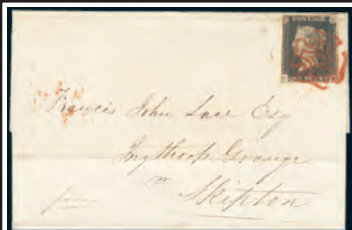 POSTAGE
Francis John Lace Esq
Ingthorp Grange
Skipton